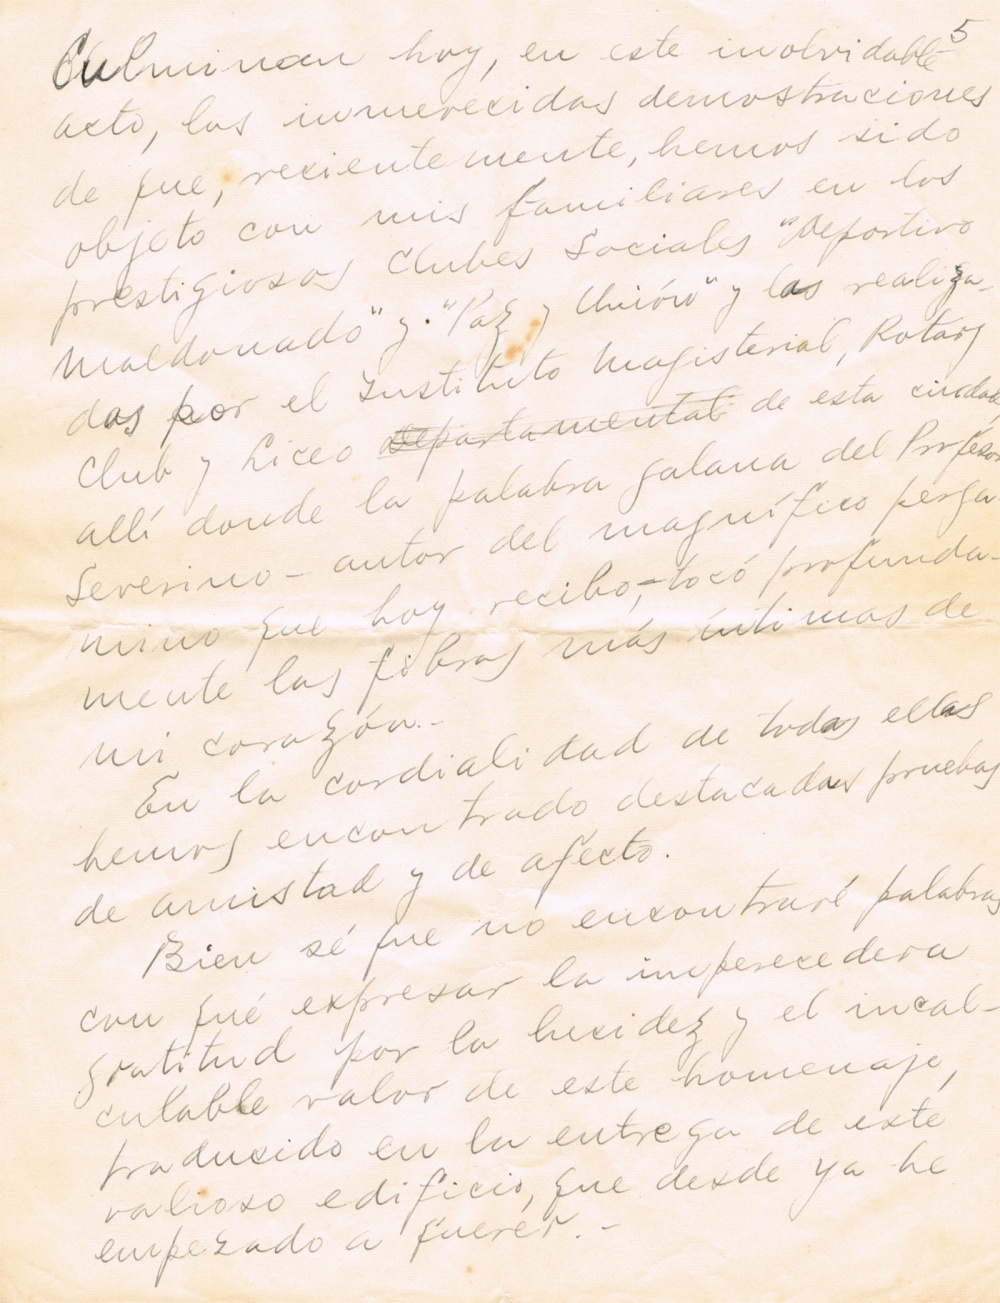 5
Culminan hoy, en este inolvidable
acto, las inmerecidas demostraciones
de que, recientemente, hemos sido
objeto con mis familiares en los
prestigiosos Clubes Sociales "Deportivo
Maldonado" y "Paz y Unión" y las realiza-
das por el Instituto Magisterial, Rotary
Club y Liceo Departamental de esta ciudad,
allí donde la palabra galana del Profesor
Severino - autor del magnífico perga-
mino que hoy recibo,- tocó profunda-
mente las fibras más íntimas de
mi corazón.-
En la cordialidad de todas ellas
hemos encontrado destacadas pruebas
de amistad y de afecto.
Bien sé que no encontraré palabras
con qué expresar la imperecedera
gratitud por la lucidez y el incal-
culable valor de este homenaje,
traducido en la entrega de este
valioso edificio, que desde ya he
empezado a querer.-